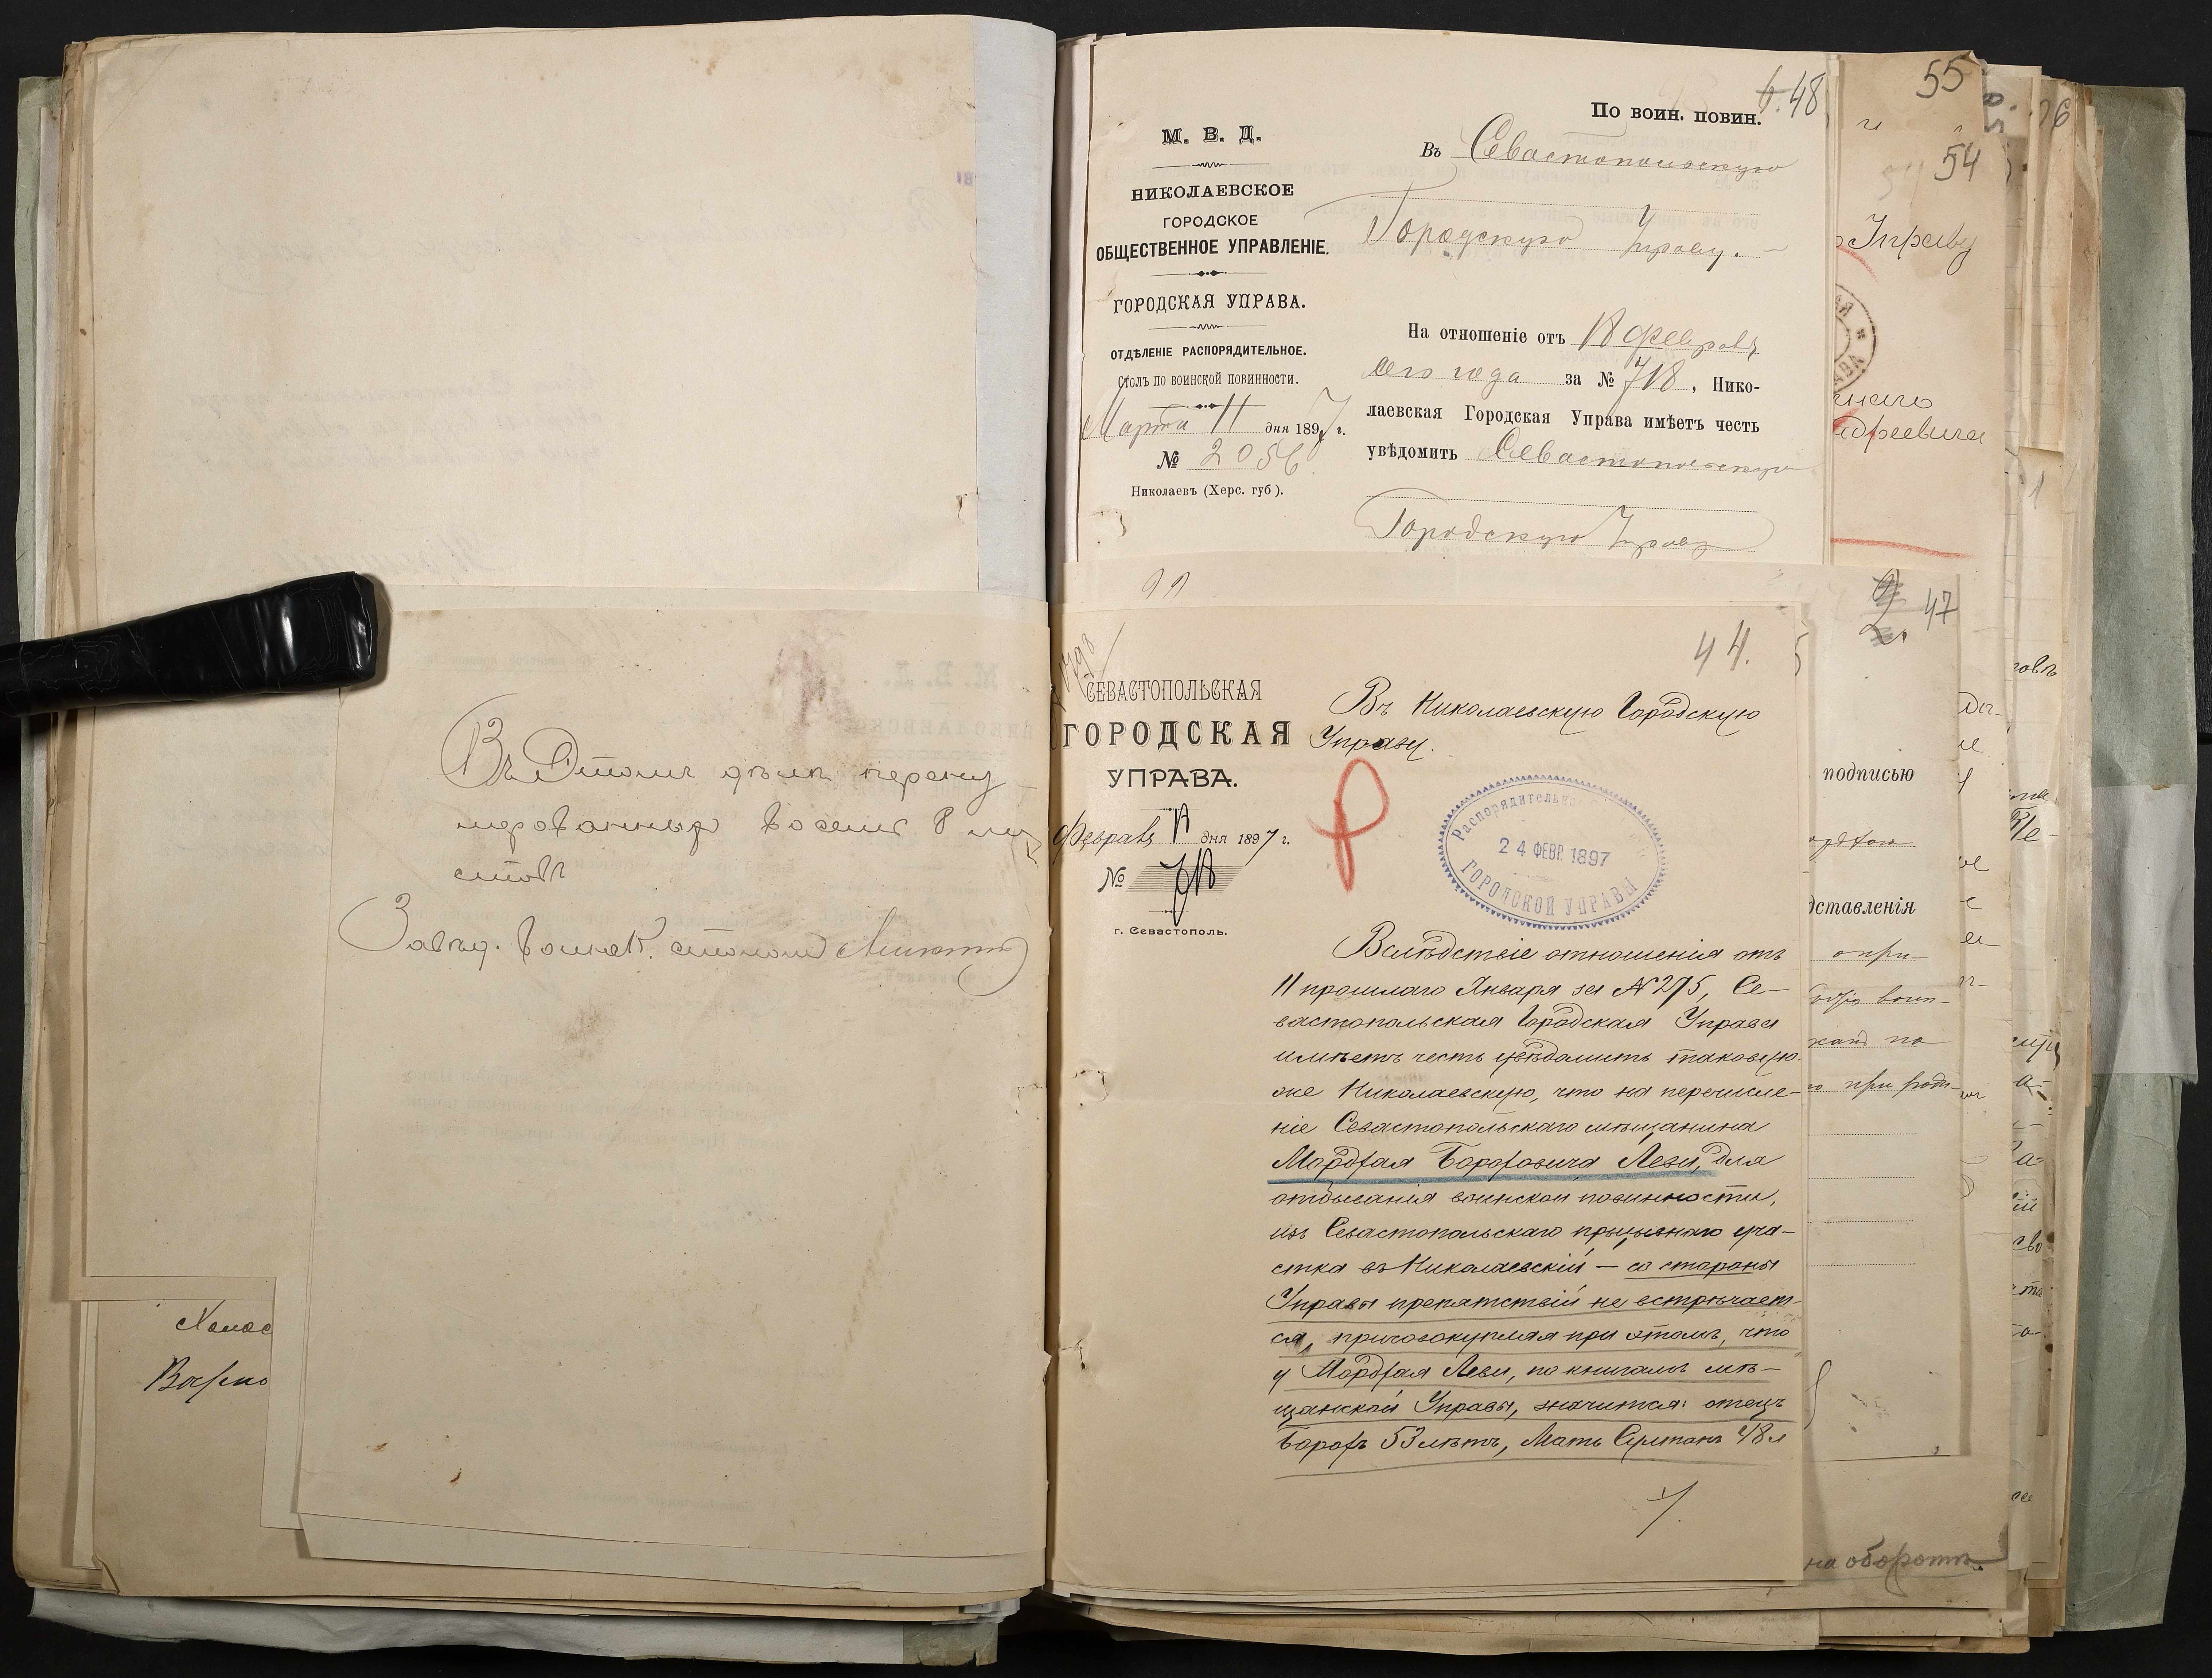 Въ Этомъ дѣлѣ перену
мерованныхъ восемь 8 ли
стовъ
Завѣд. воинск. столомъ
Халас
По воин. повин.
48
М. В. Д.
НИКОЛАЕВСКОЕ
ГОРОДСКОЕ
ОБЩЕСТВЕННОЕ УПРАВЛЕНІЕ.
ГОРОДСКАЯ УПРАВА.
ОТДѢЛЕНІЕ РАСПОРЯДИТЕЛЬНОЕ.
Столъ по воинской повинности.
Марта 11 дня 1897 г.
№ 2056
Николаевъ (Херс. губ).
Въ Севастопольскую
Городскую Управу.
На отношеніе отъ 18 Февраля
сего года за № 718, Нико-
лаевская Городская Управа имѣетъ честь
увѣдомить Севастопольскую
Городскую Управу
44.
СЕВАСТОПОЛЬСКАЯ
ГОРОДСКАЯ
УПРАВА.
Февраля дня 1897 г.
№ 718
г. Севастополь.
Въ Николаевскую Городскую
Управу.
Распорядительн
24 ФЕВР 1897
ГОРОДСКОЙ УПРАВЫ
Вслѣдствіе отношенія отъ
11 прошлаго Января за № 275, Се-
вастопольская Городская Управа
имѣетъ честь увѣдомить таковую-
же Николаевскую, что на перечисле-
ніе Севастопольскаго мѣщанина
Мордхая Бороховича Леви, для
отбыванія воинской повинности,
изъ Севастопольскаго призывнаго уча-
стка въ Николаевскій — со стороны
Управы препятствій не встрѣчает-
ся, присовокупляя при этомъ, что
у Мордхая Леви, по книгамъ мѣ-
щанской Управы, значится: отецъ
Борохъ 53 лѣтъ, Мать Султанъ 48 л
55
54
Управу
47
подписью
дставленія
на оборотѣ.